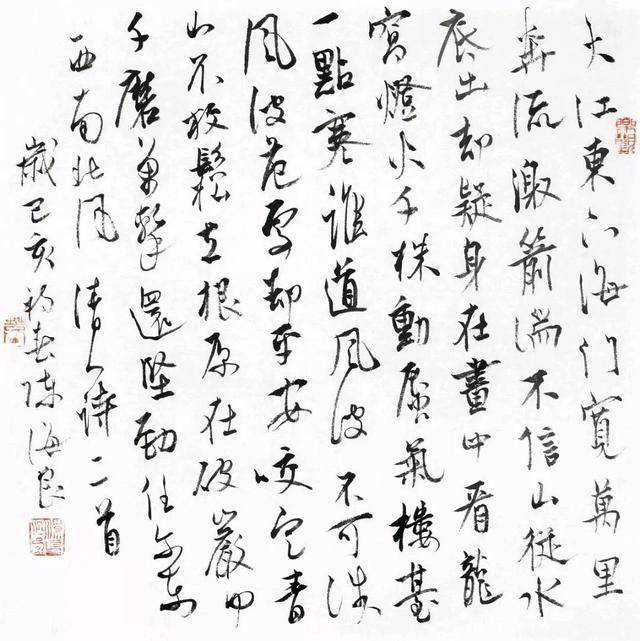 大江東下海門寬萬里
奔流激箭湍不信山從水
底出却疑身在畫中看龍
窩燈火千株動蜃氣樓臺
一點寒誰道風波不可涉
風波危處却平安咬定青
山不放鬆立根原在破巖中
千磨萬擊還堅勁任爾東
西南北風 清人詩二首
歲己亥初春陳海良